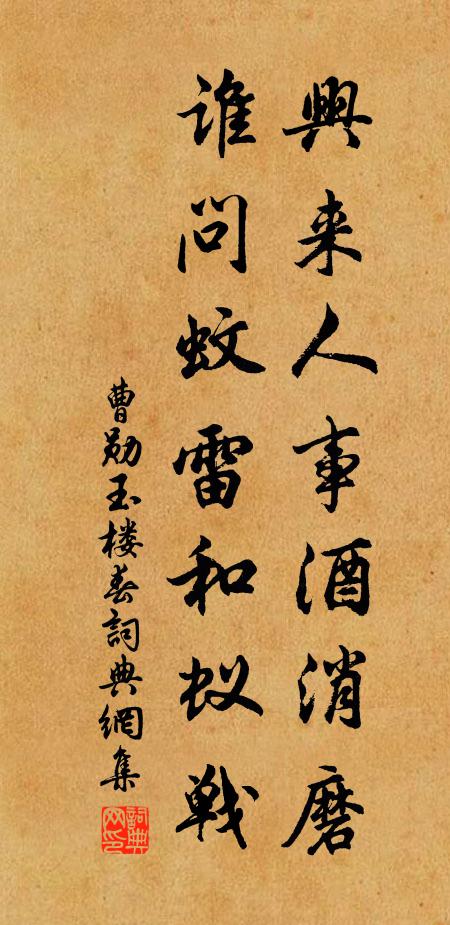 興来人事酒消磨
谁問蚊雷和蚁戦
曹勋玉楼春詞典網集
詞典網印